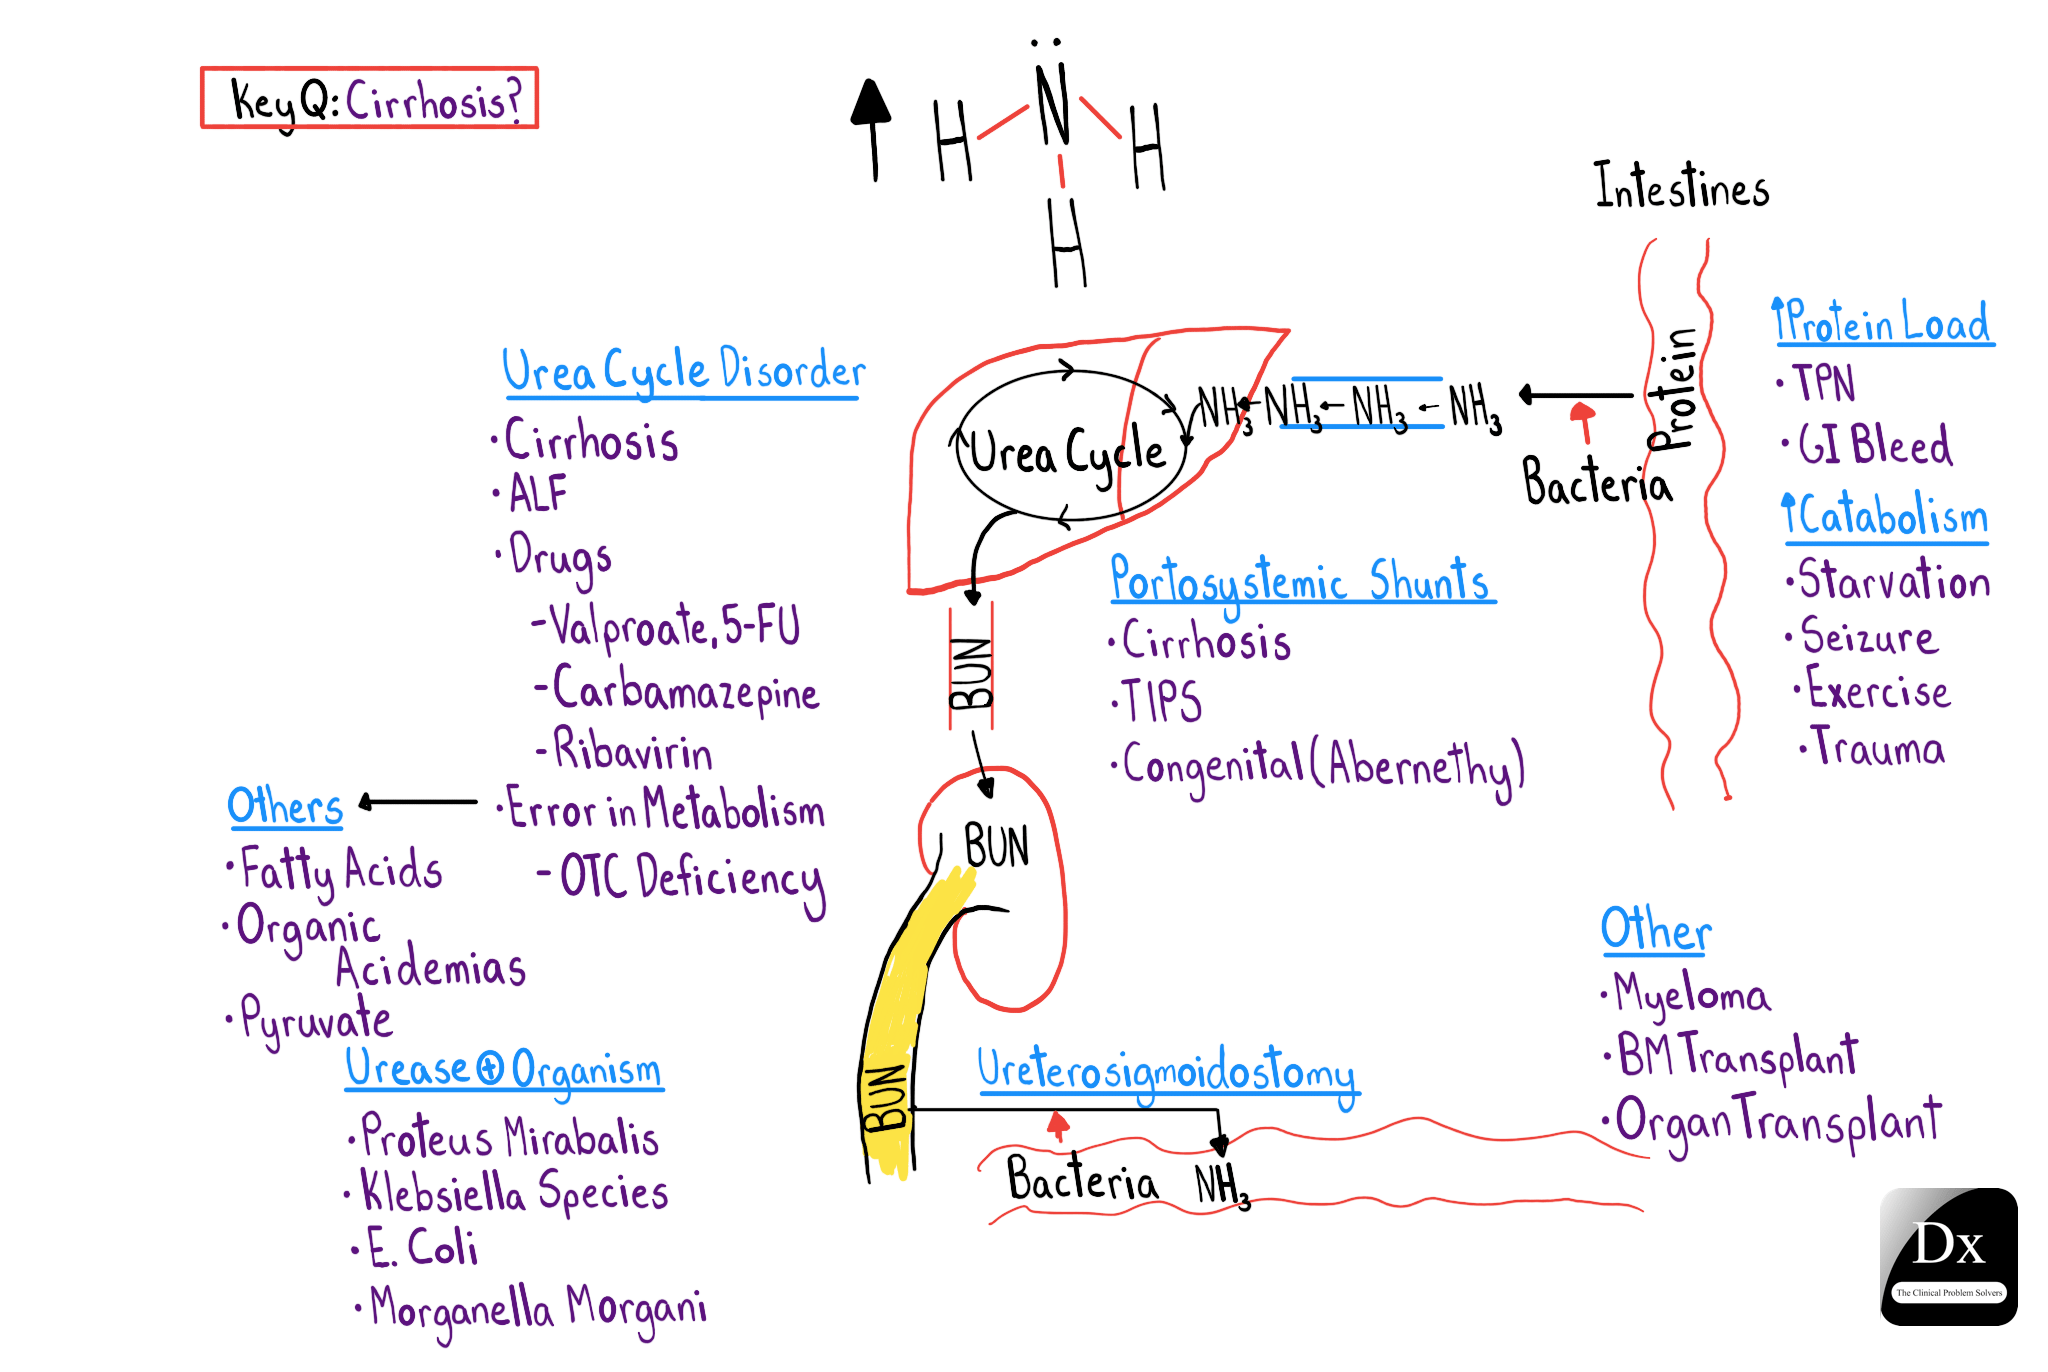 Key Q: Cirrhosis?
N
H H
H
Intestines
Protein
Bacteria
NH3 NH3 NH3 NH3
Urea Cycle
BUN
BUN
BUN
↑Protein Load
• TPN
• GI Bleed
↑Catabolism
• Starvation
• Seizure
• Exercise
• Trauma
Urea Cycle Disorder
• Cirrhosis
• ALF
• Drugs
- Valproate, 5-FU
- Carbamazepine
- Ribavirin
• Error in Metabolism
- OTC Deficiency
Others
• Fatty Acids
• Organic
Acidemias
• Pyruvate
Portosystemic Shunts
• Cirrhosis
• TIPS
• Congenital (Abernethy)
Urease ⊕ Organism
• Proteus Mirabalis
• Klebsiella Species
• E. Coli
• Morganella Morgani
Ureterosigmoidostomy
Bacteria NH3
Other
• Myeloma
• BM Transplant
• Organ Transplant
Dx
The Clinical Problem Solvers